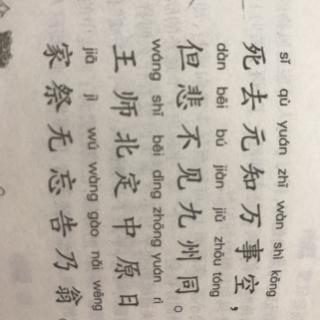 sǐ qù yuán zhī wàn shì kōng
死去元知万事空，
dàn bēi bú jiàn jiǔ zhōu tóng
但悲不见九州同。
wáng shī běi dìng zhōng yuán rì
王师北定中原日
jiā jì wú wàng gào nǎi wēng
家祭无忘告乃翁。